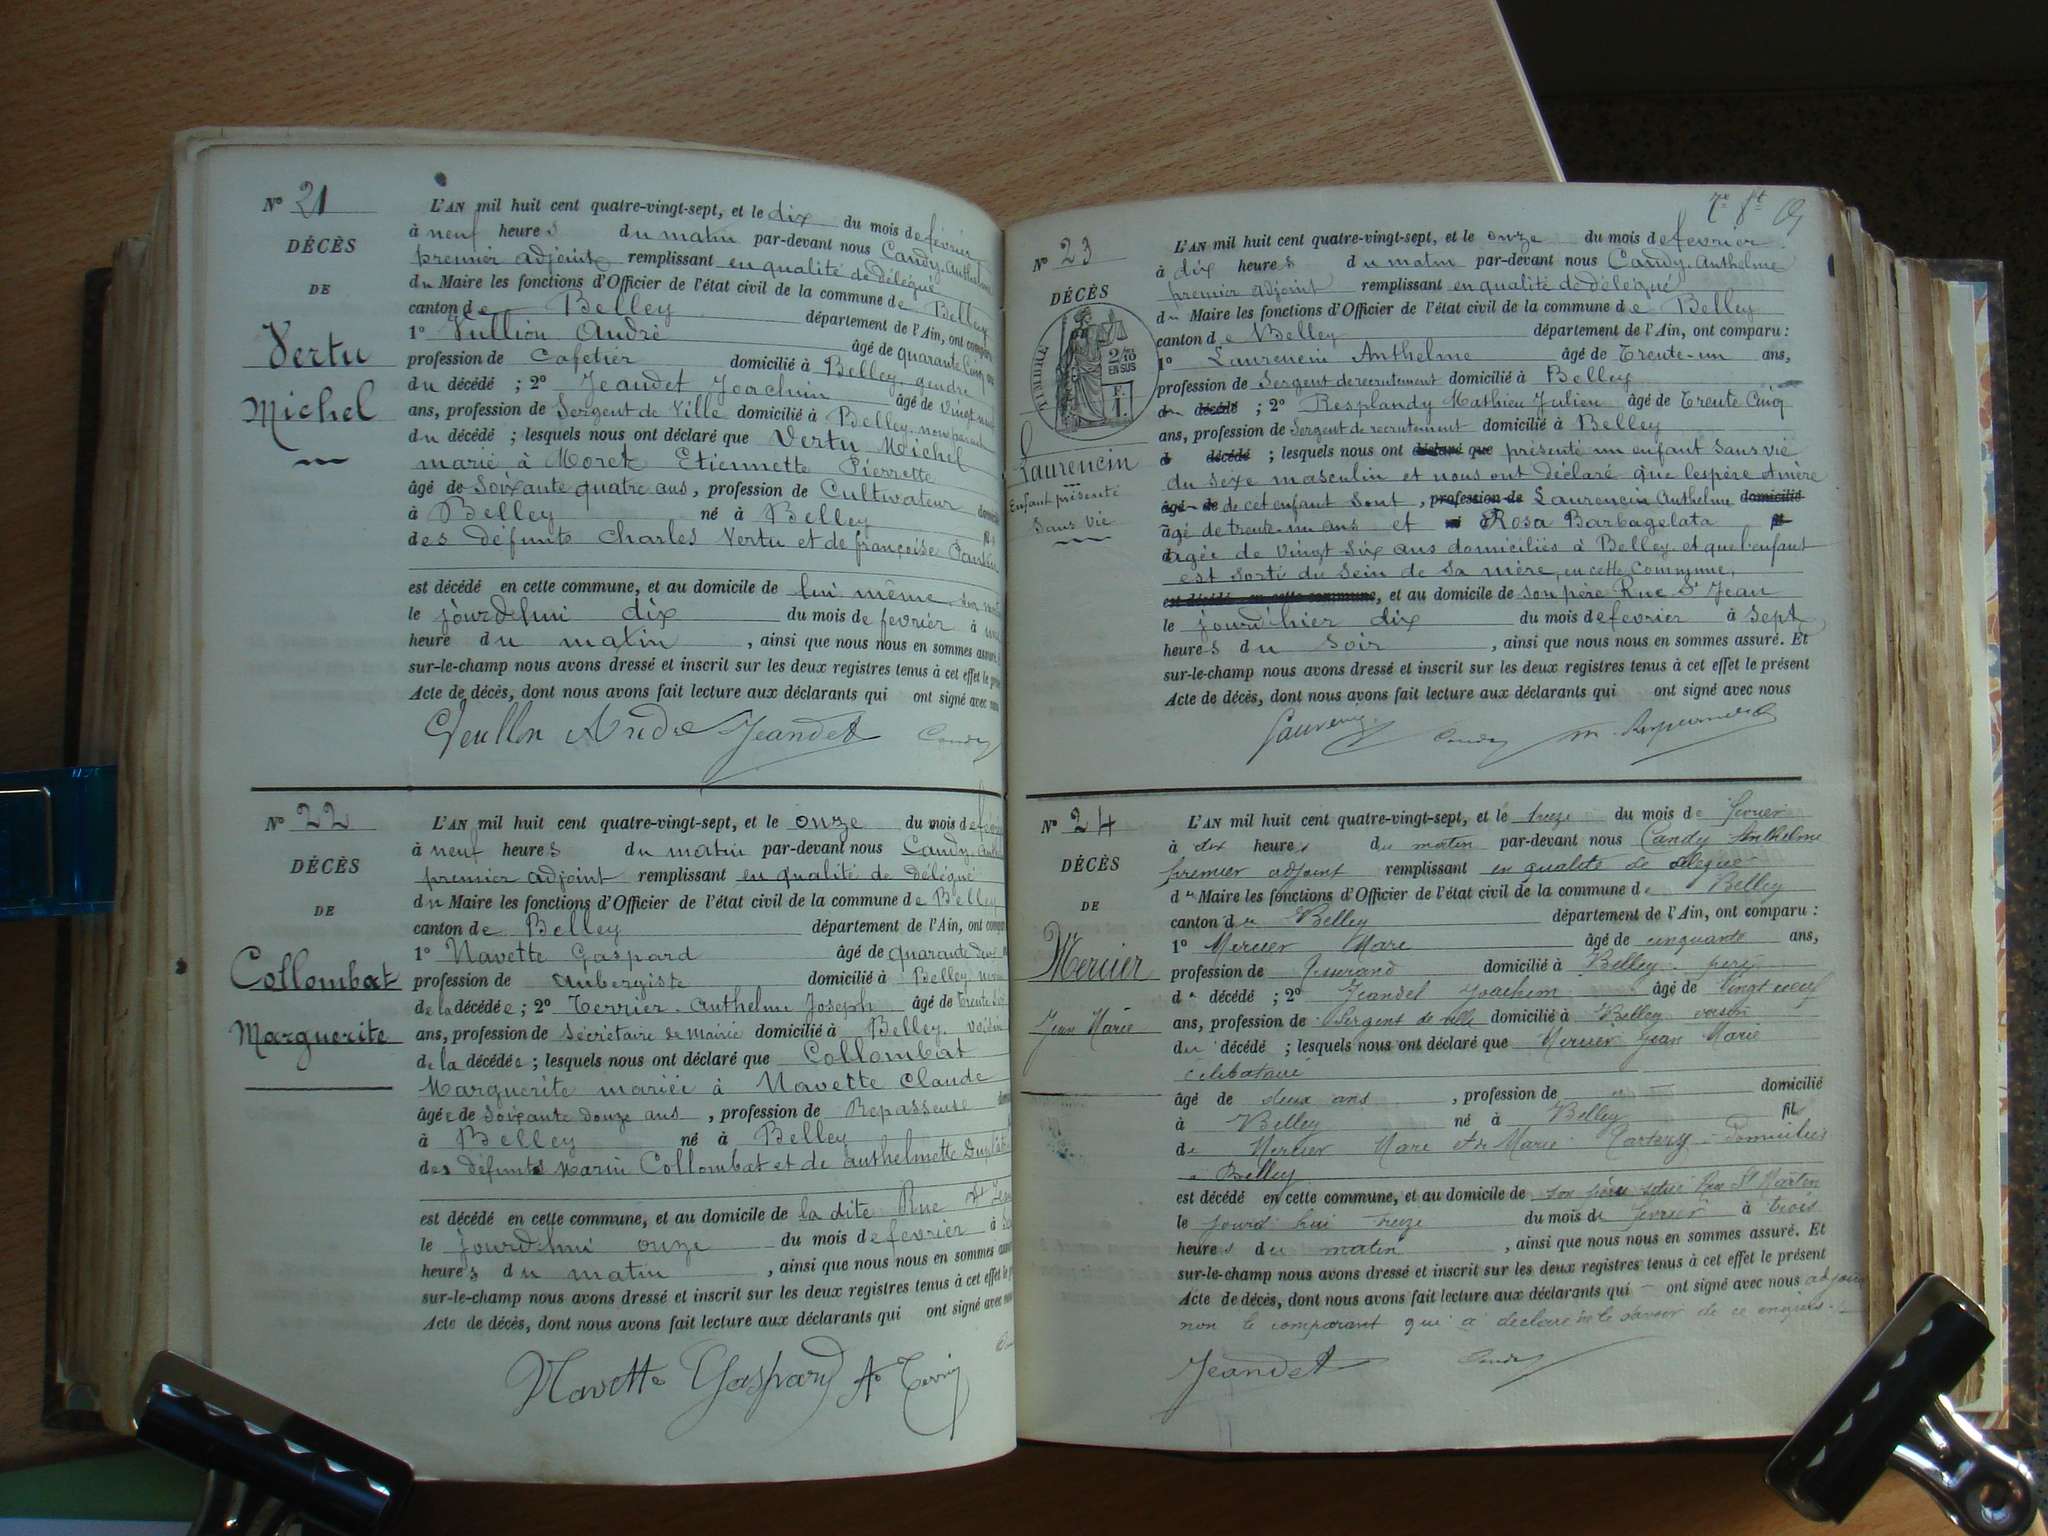 N° 21
DÉCÈS
DE
Vertu
Michel
L'AN mil huit cent quatre-vingt-sept, et le dix du mois de février
à neuf heures du matin par-devant nous Candy Anthelme
premier adjoint remplissant en qualité de délégué
du Maire les fonctions d'Officier de l'état civil de la commune de Belley
canton de Belley département de l'Ain, ont comparu
1° Vullion André âgé de quarante cinq
profession de Cafetier domicilié à Belley, gendre
du décédé ; 2° Jeandet Joachim âgé de vingt neuf
ans, profession de Sergent de Ville domicilié à Belley, non parent
du décédé ; lesquels nous ont déclaré que Vertu Michel
marié à Moret Etiennette Pierrette
âgé de Soixante quatre ans, profession de Cultivateur
à Belley né à Belley
des défunts Charles Vertu et de françoise
est décédé en cette commune, et au domicile de lui même
le jourd'hui dix du mois de fevrier à
heure du matin , ainsi que nous nous en sommes assuré.
sur-le-champ nous avons dressé et inscrit sur les deux registres tenus à cet effet le
Acte de décès, dont nous avons fait lecture aux déclarants qui ont signé avec
André Jeandet Candy
N° 22
DÉCÈS
DE
Collombat
Marguerite
L'AN mil huit cent quatre-vingt-sept, et le onze du mois de
à neuf heures du matin par-devant nous Candy
premier adjoint remplissant en qualité de délégué
du Maire les fonctions d'Officier de l'état civil de la commune de Belley
canton de Belley département de l'Ain, ont
1° Navette Gaspard âgé de quarante deux
profession de aubergiste domicilié à Belley
de la décédée ; 2° Terrier Anthelme Joseph âgé de Trente
ans, profession de Secrétaire de Mairie domicilié à Belley voisin
de la décédée ; lesquels nous ont déclaré que Collombat
Marguerite mariée à Navette Claude
âgée de Soixante douze ans , profession de Repasseuse
à Belley né à Belley
des défunts Marin Collombat et de anthelmette
est décédé en cette commune, et au domicile de la dite Rue St Jean
le jourd'hui onze du mois de fevrier à
heures du matin , ainsi que nous nous en sommes
sur-le-champ nous avons dressé et inscrit sur les deux registres tenus à cet effet le
Acte de décès, dont nous avons fait lecture aux déclarants qui ont signé avec
Navette Gaspard
N° 23
DÉCÈS
TIMBRE
2/10
EN SUS
F.
1.
Laurencin
Enfant présenté
Sans Vie
L'AN mil huit cent quatre-vingt-sept, et le onze du mois de fevrier
à dix heures du matin par-devant nous Candy Anthelme
premier adjoint remplissant en qualité de délégué
du Maire les fonctions d'Officier de l'état civil de la commune de Belley
canton de Belley département de l'Ain, ont comparu :
1° Laurencin Anthelme âgé de Trente-un ans,
profession de Sergent de recrutement domicilié à Belley
du décédé ; 2° Resplandy Mathieu Julien âgé de Trente Cinq
ans, profession de Sergent de recrutement domicilié à Belley
d décédé ; lesquels nous ont déclaré que présenté un enfant sans vie
du sexe masculin et nous ont déclaré que les père et mère
âgé de de cet enfant sont , profession de Laurencin Anthelme domicilié
âgé de trente-un ans et né Rosa Barbagelata fil
agée de vingt six ans domiciliés à Belley et que l'enfant
est sorti du sein de sa mère, en cette commune,
est décédé en cette commune, et au domicile de son père Rue St Jean
le jourd'hier dix du mois de fevrier à sept
heures du soir , ainsi que nous nous en sommes assuré. Et
sur-le-champ nous avons dressé et inscrit sur les deux registres tenus à cet effet le présent
Acte de décès, dont nous avons fait lecture aux déclarants qui ont signé avec nous
Candy
N° 24
DÉCÈS
DE
Mercier
Jean Marie
L'AN mil huit cent quatre-vingt-sept, et le treize du mois de fevrier
à dix heures du matin par-devant nous Candy Anthelme
premier adjoint remplissant en qualité de délégué
du Maire les fonctions d'Officier de l'état civil de la commune de Belley
canton de Belley département de l'Ain, ont comparu :
1° Mercier Marc âgé de cinquante ans,
profession de Tisserand domicilié à Belley père
du décédé ; 2° Jeandet Joachim âgé de vingt neuf
ans, profession de Sergent de ville domicilié à Belley voisin
du décédé ; lesquels nous ont déclaré que Mercier Jean Marie
célibataire
âgé de deux ans , profession de domicilié
à Belley né à Belley fils
de Mercier Marc et de Marie domiciliés
à Belley
est décédé en cette commune, et au domicile de son père Rue St Martin
le jourd'hui treize du mois de fevrier à trois
heures du matin , ainsi que nous nous en sommes assuré. Et
sur-le-champ nous avons dressé et inscrit sur les deux registres tenus à cet effet le présent
Acte de décès, dont nous avons fait lecture aux déclarants qui ont signé avec nous
non le comparant qui a déclaré ne le savoir de ce
Jeandet Candy